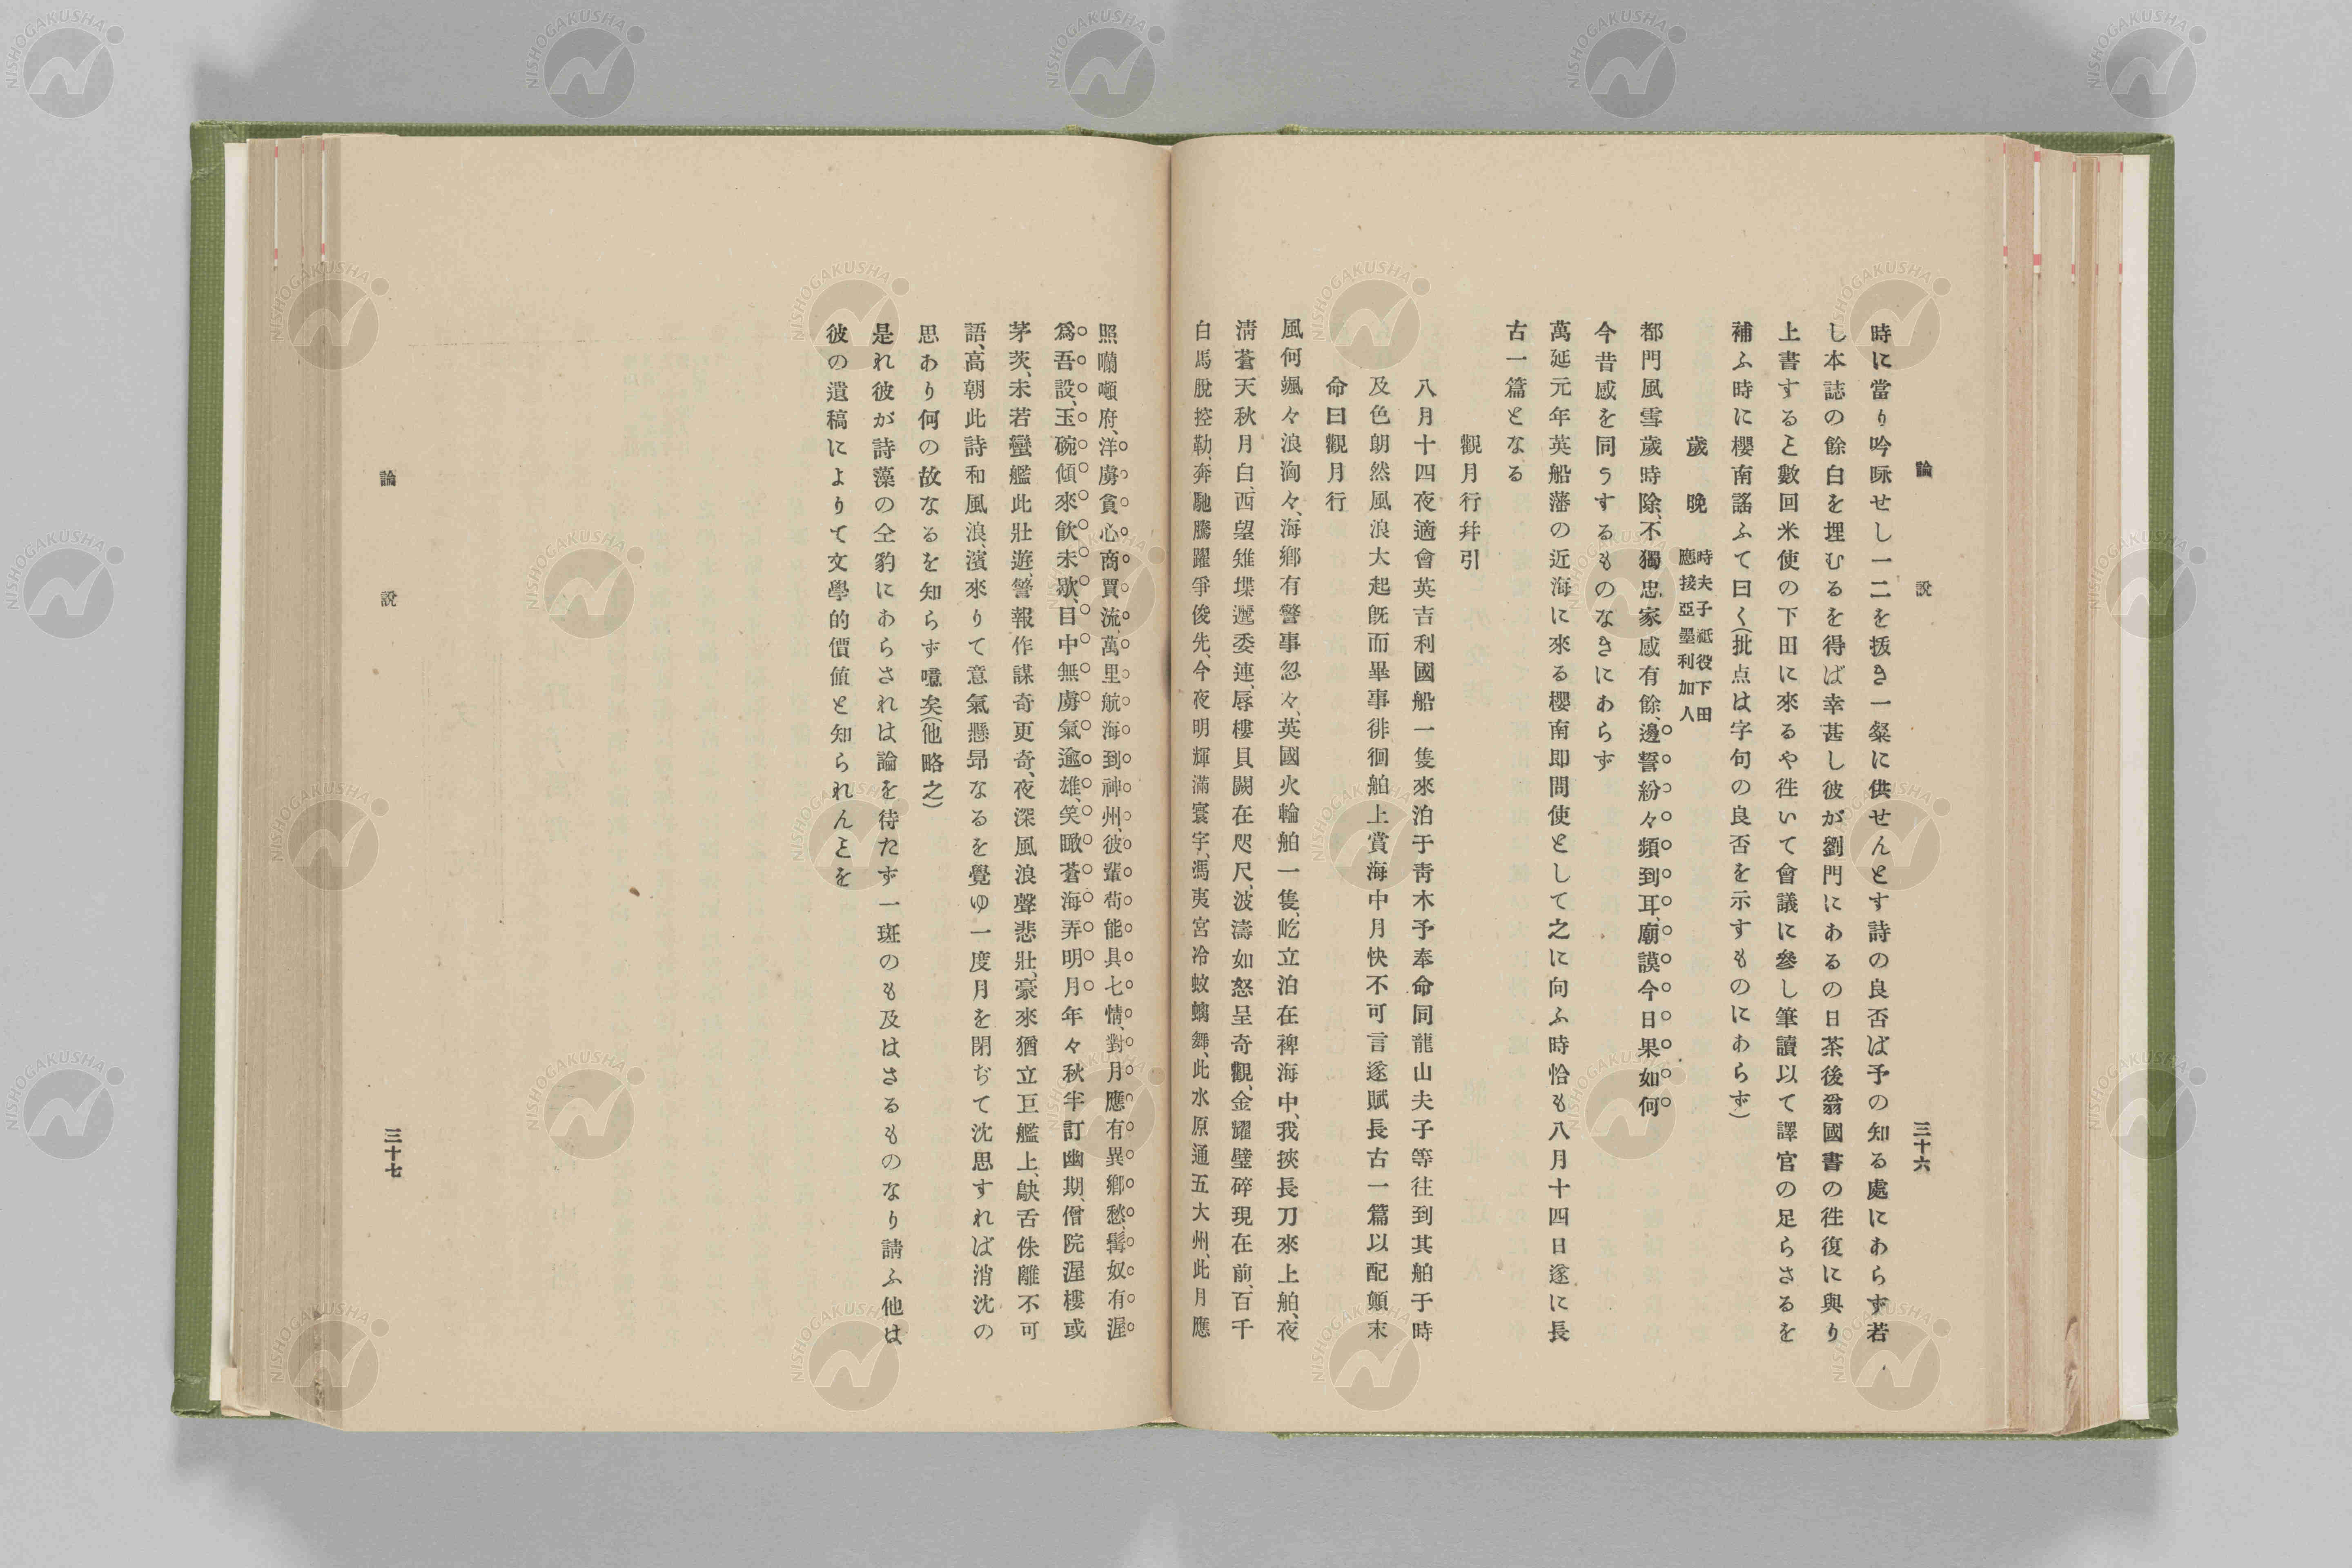 論說
三十六
時に當り吟咏せし一二を拔き一粲に供せんとす詩の良否は予の知る處にあらず若
し本誌の餘白を埋むるを得ば幸甚し彼が劉門にあるの日茶後翁國書の徃復に與り
上書するヿ數回米使の下田に來るや徃いて會議に參し筆讀以て譯官の足らさるを
補ふ時に櫻南謠ふて曰く(批点は字句の良否を示すものにあらず)
歲晚
時夫子祗役下田
應接亞墨利加人
都門風雪歲時除、不獨忠家感有餘、邊警紛々頻到耳、廟謨今日果如何
今昔感を同うするものなきにあらず
萬延元年英船藩の近海に來る櫻南卽問使として之に向ふ時恰も八月十四日遂に長
古一篇となる
觀月行幷引
八月十四夜適會英吉利國船一隻來泊于靑木予奉命同龍山夫子等往到其舶于時
及色朗然風浪大起既而畢事徘徊舶上賞海中月快不可言遂賦長古一篇以配顚末
命曰觀月行
風何颯々浪洶々、海鄕有警事忽々、英國火輪舶一隻、屹立泊在裨海中、我挾長刀來上舶、夜
淸蒼天秋月白、西望雉堞邐委連、辱樓貝闕在咫尺、波濤如怒呈奇觀、金耀璧碎現在前、百千
白馬脫控勒、奔馳騰躍爭俊先、今夜明輝滿寰宇、馮夷宮冷蛟螭舞、此水原通五大州、此月應
照囒噸府、洋虜貪心商賈流、萬里航海到神州、彼輩荀能具七情、對月應有異鄕愁、髯奴有渥
爲吾設、玉碗傾來飮未歇、目中無虜氣逾雄、笑瞰蒼海弄明月、年々秋半訂幽期、僧院渥樓或
茅茨、未若蠻艦此壯遊、警報作謀奇更奇、夜深風浪聲悲壯、豪來猶立巨艦上、鴃舌侏離不可
語、高朝此詩和風浪、濱來りて意氣懸昻なるを覺ゆ一度月を閉ぢて沈思すれば消沈の
思あり何の故なるを知らず噫矣(他略之)
是れ彼が詩藻の仝豹にあらされは論を待たず一斑のも及はさるものなり請ふ他は
彼の遺稿によりて文學的價値と知られんヿを
論說
三十七
NISHOGAKUSHA